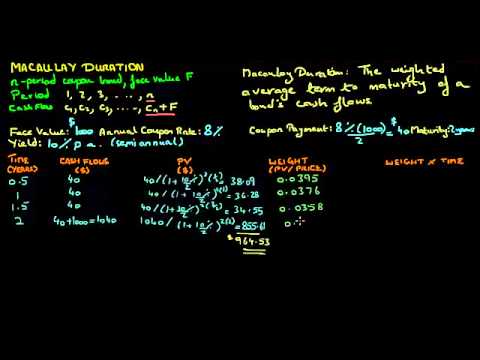 MACAULAY DURATION
n-period coupon bond, face value F
Period 1, 2, 3, ...., n
Cash Flow C₁, C₂, C₃, ..., Cn + F
Macaulay Duration: The weighted
average term to maturity of a
bond's cash flows
Face Value: $1000 Annual Coupon Rate: 8% Coupon Payment: 8%(1000)/2 = $40 Maturity: 2 years
Yield: 10% p.a. (semiannual)
TIME (YEARS) CASH FLOWS ($) PV ($) WEIGHT (PV/PRICE) WEIGHT × TIME
0.5 40 40/(1+10%/2)^2(½) = 38.09 0.0395
1 40 40/(1+10%/2)^2(1) = 36.28 0.0376
1.5 40 40/(1+10%/2)^2(1½) = 34.55 0.0358
2 40+1000=1040 1040/(1+10%/2)^2(2) = 855.61 0.
$964.53